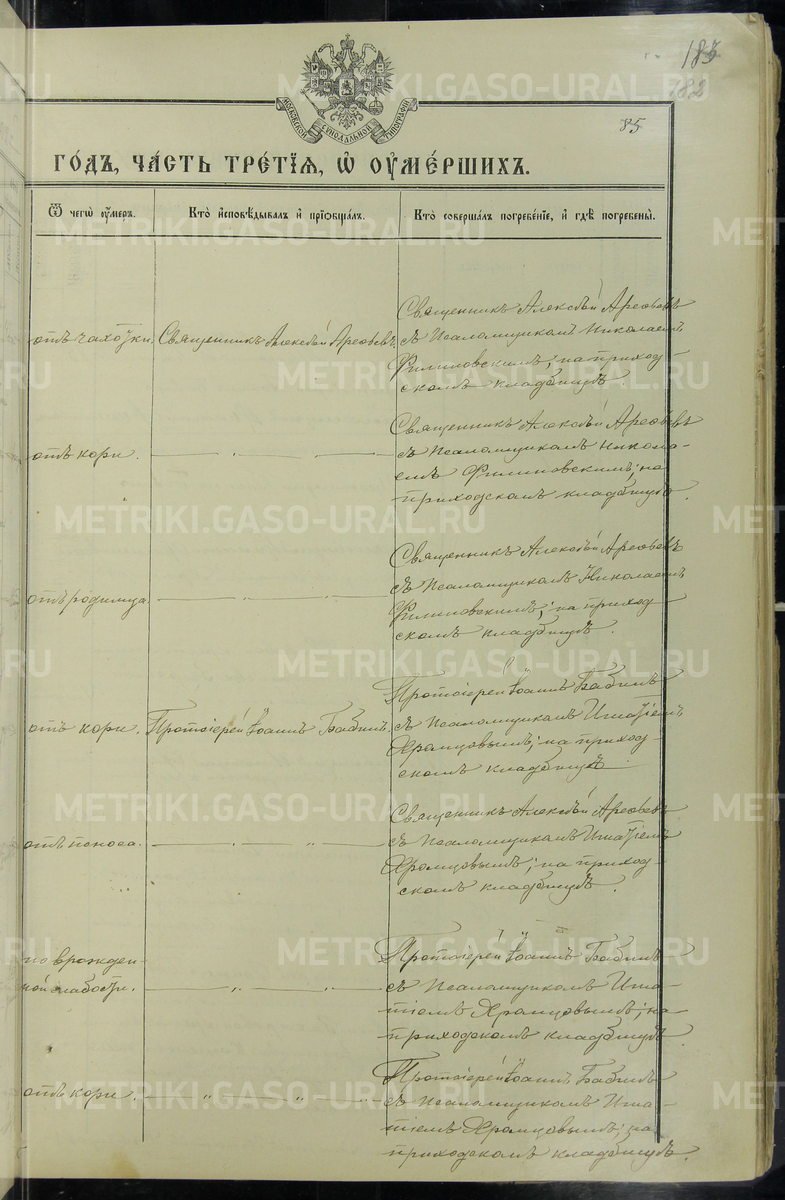 183
182
85
МОСКОВСКОЙ СѴНОДАЛЬНОЙ ТИПОГРАФІИ
ГО́ДЪ, ЧА́СТЬ ТРЕ́ТІѦ, Ѽ ОУ҆МЕ́РШИХЪ.
Ѿ чегѡ̀ оу҆́меръ.
Кто̀ и҆сповѣ́дывалъ и҆ прїѡбща́лъ.
Кто̀ соверша́лъ погребе́нїе, и҆ гдѣ̀ погребены̀.
отъ чахотки.
Священникъ Алексѣй Арефьевъ.
Священникъ Алексѣй Арефьевъ
съ Псаломщикомъ Николаемъ
Филиповскимъ; на приход-
скомъ кладбищѣ.
отъ кори.
— „ — „ —
Священникъ Алексѣй Арефьевъ
съ Псаломщикомъ Никола-
емъ Филиповскимъ; на
приходскомъ кладбищѣ.
отъ родимца.
— „ — „ —
Священникъ Алексѣй Арефьевъ
съ Псаломщикомъ Николаемъ
Филиповскимъ; на приход-
скомъ кладбищѣ.
отъ кори.
Протоіерей Іоаннъ Бабинъ.
Протоіерей Іоаннъ Бабинъ
съ Псаломщикомъ Игнатіемъ
Храмцовымъ; на приход-
скомъ кладбищѣ.
отъ поноса.
— „ — „ —
Священникъ Алексѣй Арефьевъ
съ Псаломщикомъ Игнатіемъ
Храмцовымъ; на приход-
скомъ кладбищѣ.
по врожден-
ной слабости.
— „ — „ —
Протоіерей Іоаннъ Бабинъ
съ Псаломщикомъ Игна-
тіемъ Храмцовымъ; на
приходскомъ кладбищѣ.
отъ кори.
— „ — „ —
Протоіерей Іоаннъ Бабинъ
съ Псаломщикомъ Игна-
тіемъ Храмцовымъ; на
приходскомъ кладбищѣ.
METRIKI.GASO-URAL.RU